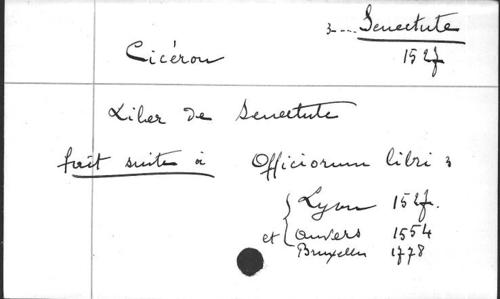 3 --- Senectute
Cicéron 152f
Liber de Senectute
fait suite à Officiorum libri 3
Lyon 152f.
et Anvers 1554
Bruxelles 1778